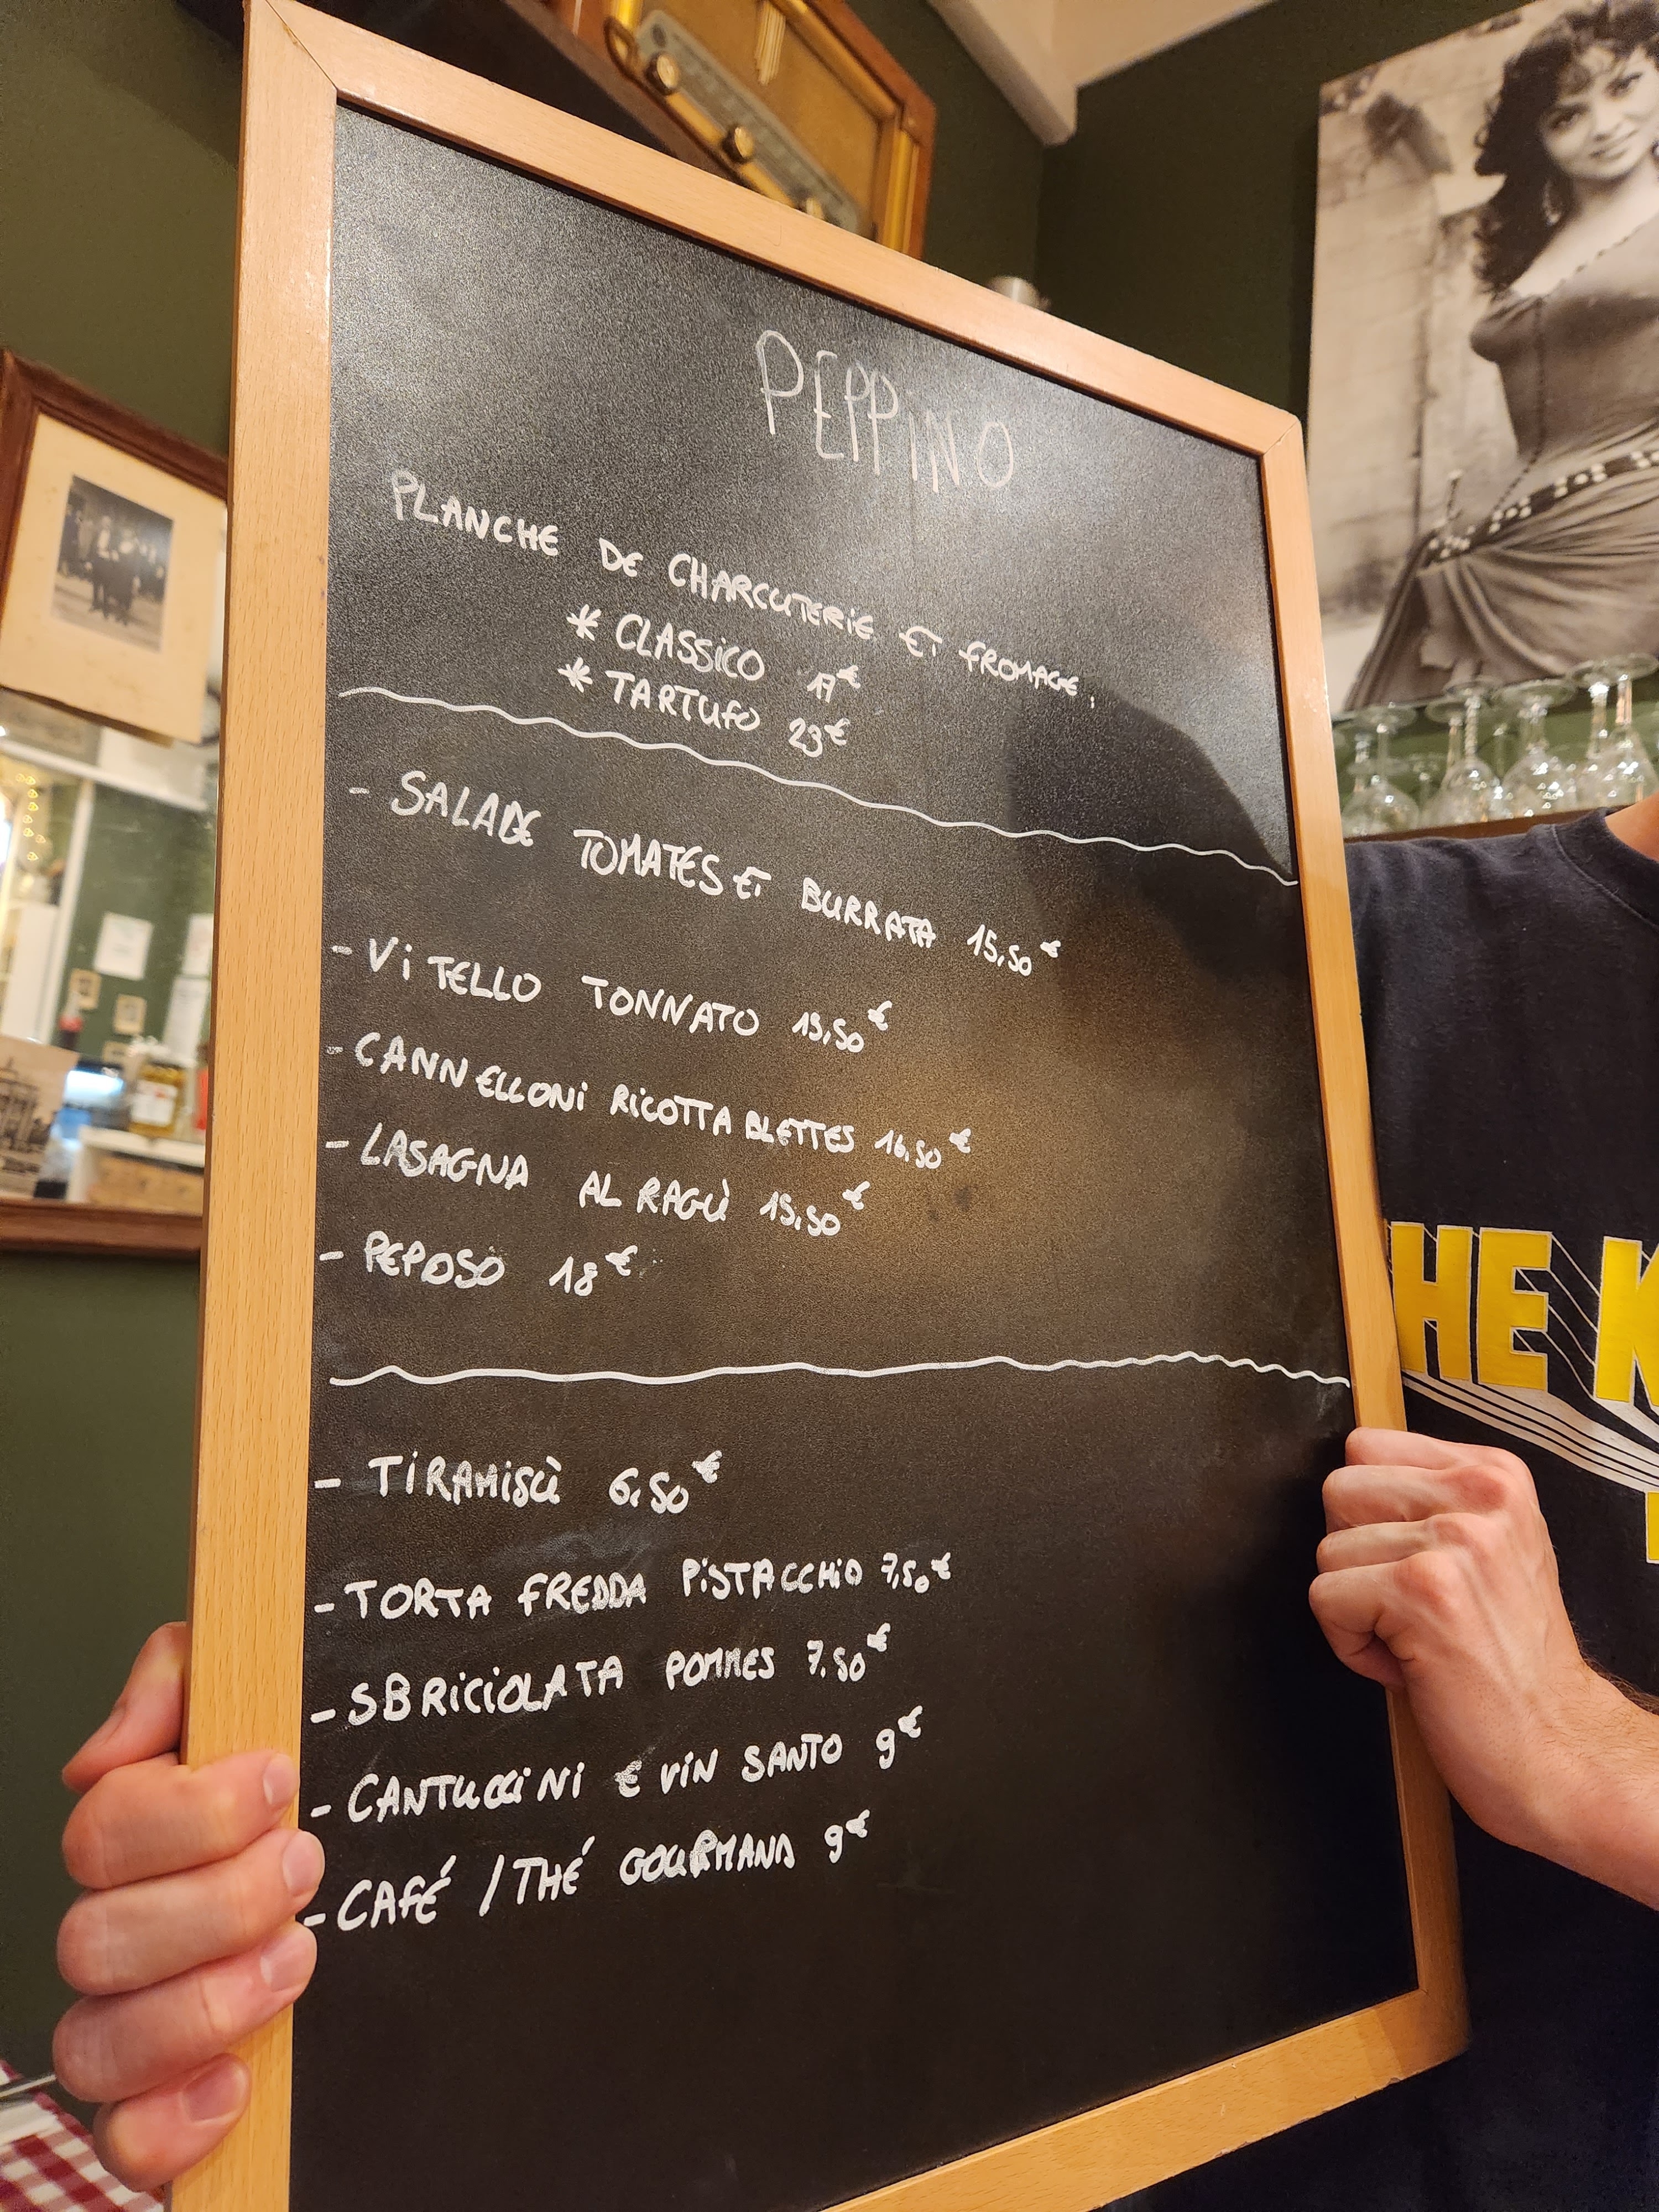 PEPPINO
PLANCHE DE CHARCUTERIE ET FROMAGE:
* CLASSICO 17€
* TARTUFO 23€
- SALADE TOMATES ET BURRATA 15,50€
- VITELLO TONNATO 15,50€
- CANNELLONI RICOTTA BLETTES 16,50€
- LASAGNA AL RAGÙ 15,50€
- PEPOSO 18€
- TIRAMISÙ 6,50€
- TORTA FREDDA PISTACCHIO 7,50€
- SBRICIOLATA POMMES 7,50€
- CANTUCCINI E VIN SANTO 9€
- CAFÉ / THÉ GOURMAND 9€
HE K